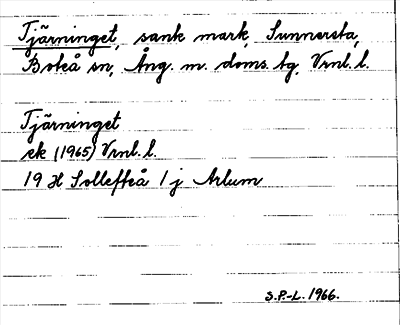 Tjärninget, sank mark, Sunnersta,
Boteå sn, Ång. m. doms. tg, Vrnl. l.
Tjärninget
ek (1965) Vrnl. l.
19 H Sollefteå 1 j Arlum
S.P.-L. 1966.